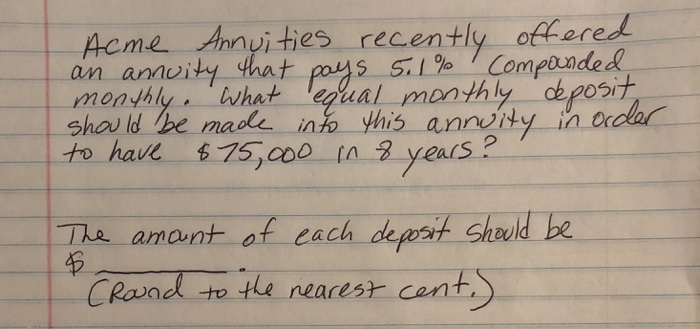 Acme Annuities recently offered
an annuity that pays 5.1% compounded
monthly. What equal monthly deposit
should be made into this annuity in order
to have $75,000 in 8 years?
The amount of each deposit should be
$ ________.
(Round to the nearest cent.)